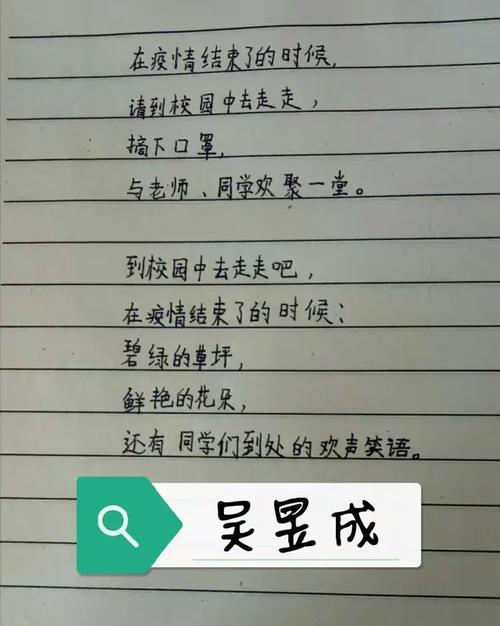 在疫情结束了的时候,
请到校园中去走走，
摘下口罩,
与老师、同学欢聚一堂。
到校园中去走走吧，
在疫情结束了的时候；
碧绿的草坪,
鲜艳的花朵,
还有同学们到处的欢声笑语。
吴昱成